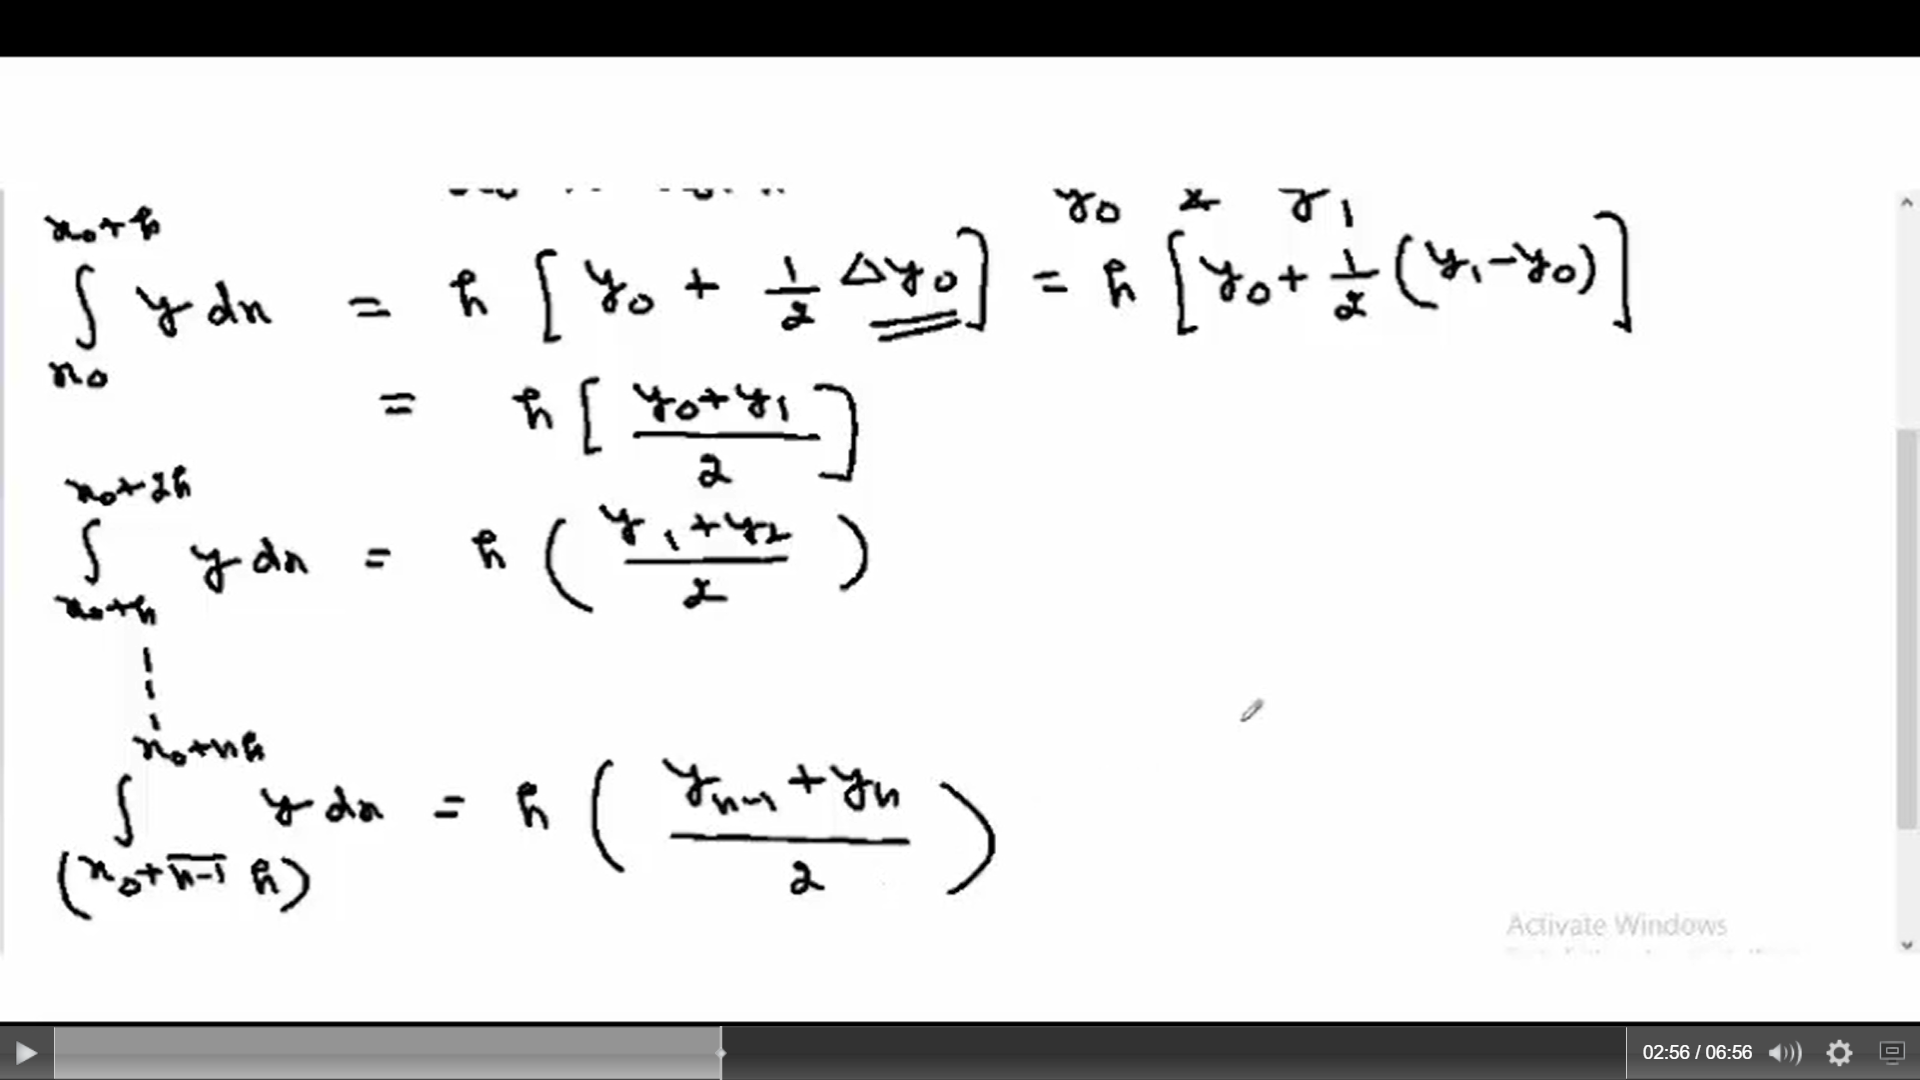 y₀ & y₁
∫_{x₀}^{x₀+h} y dx = h [ y₀ + 1/2 Δy₀ ] = h [ y₀ + 1/2 (y₁ - y₀) ]
= h [ (y₀ + y₁)/2 ]
∫_{x₀+h}^{x₀+2h} y dx = h ( (y₁ + y₂)/2 )
∫_{(x₀+\overline{n-1} h)}^{x₀+nh} y dx = h ( (y_{n-1} + y_n)/2 )
Activate Windows
02:56 / 06:56